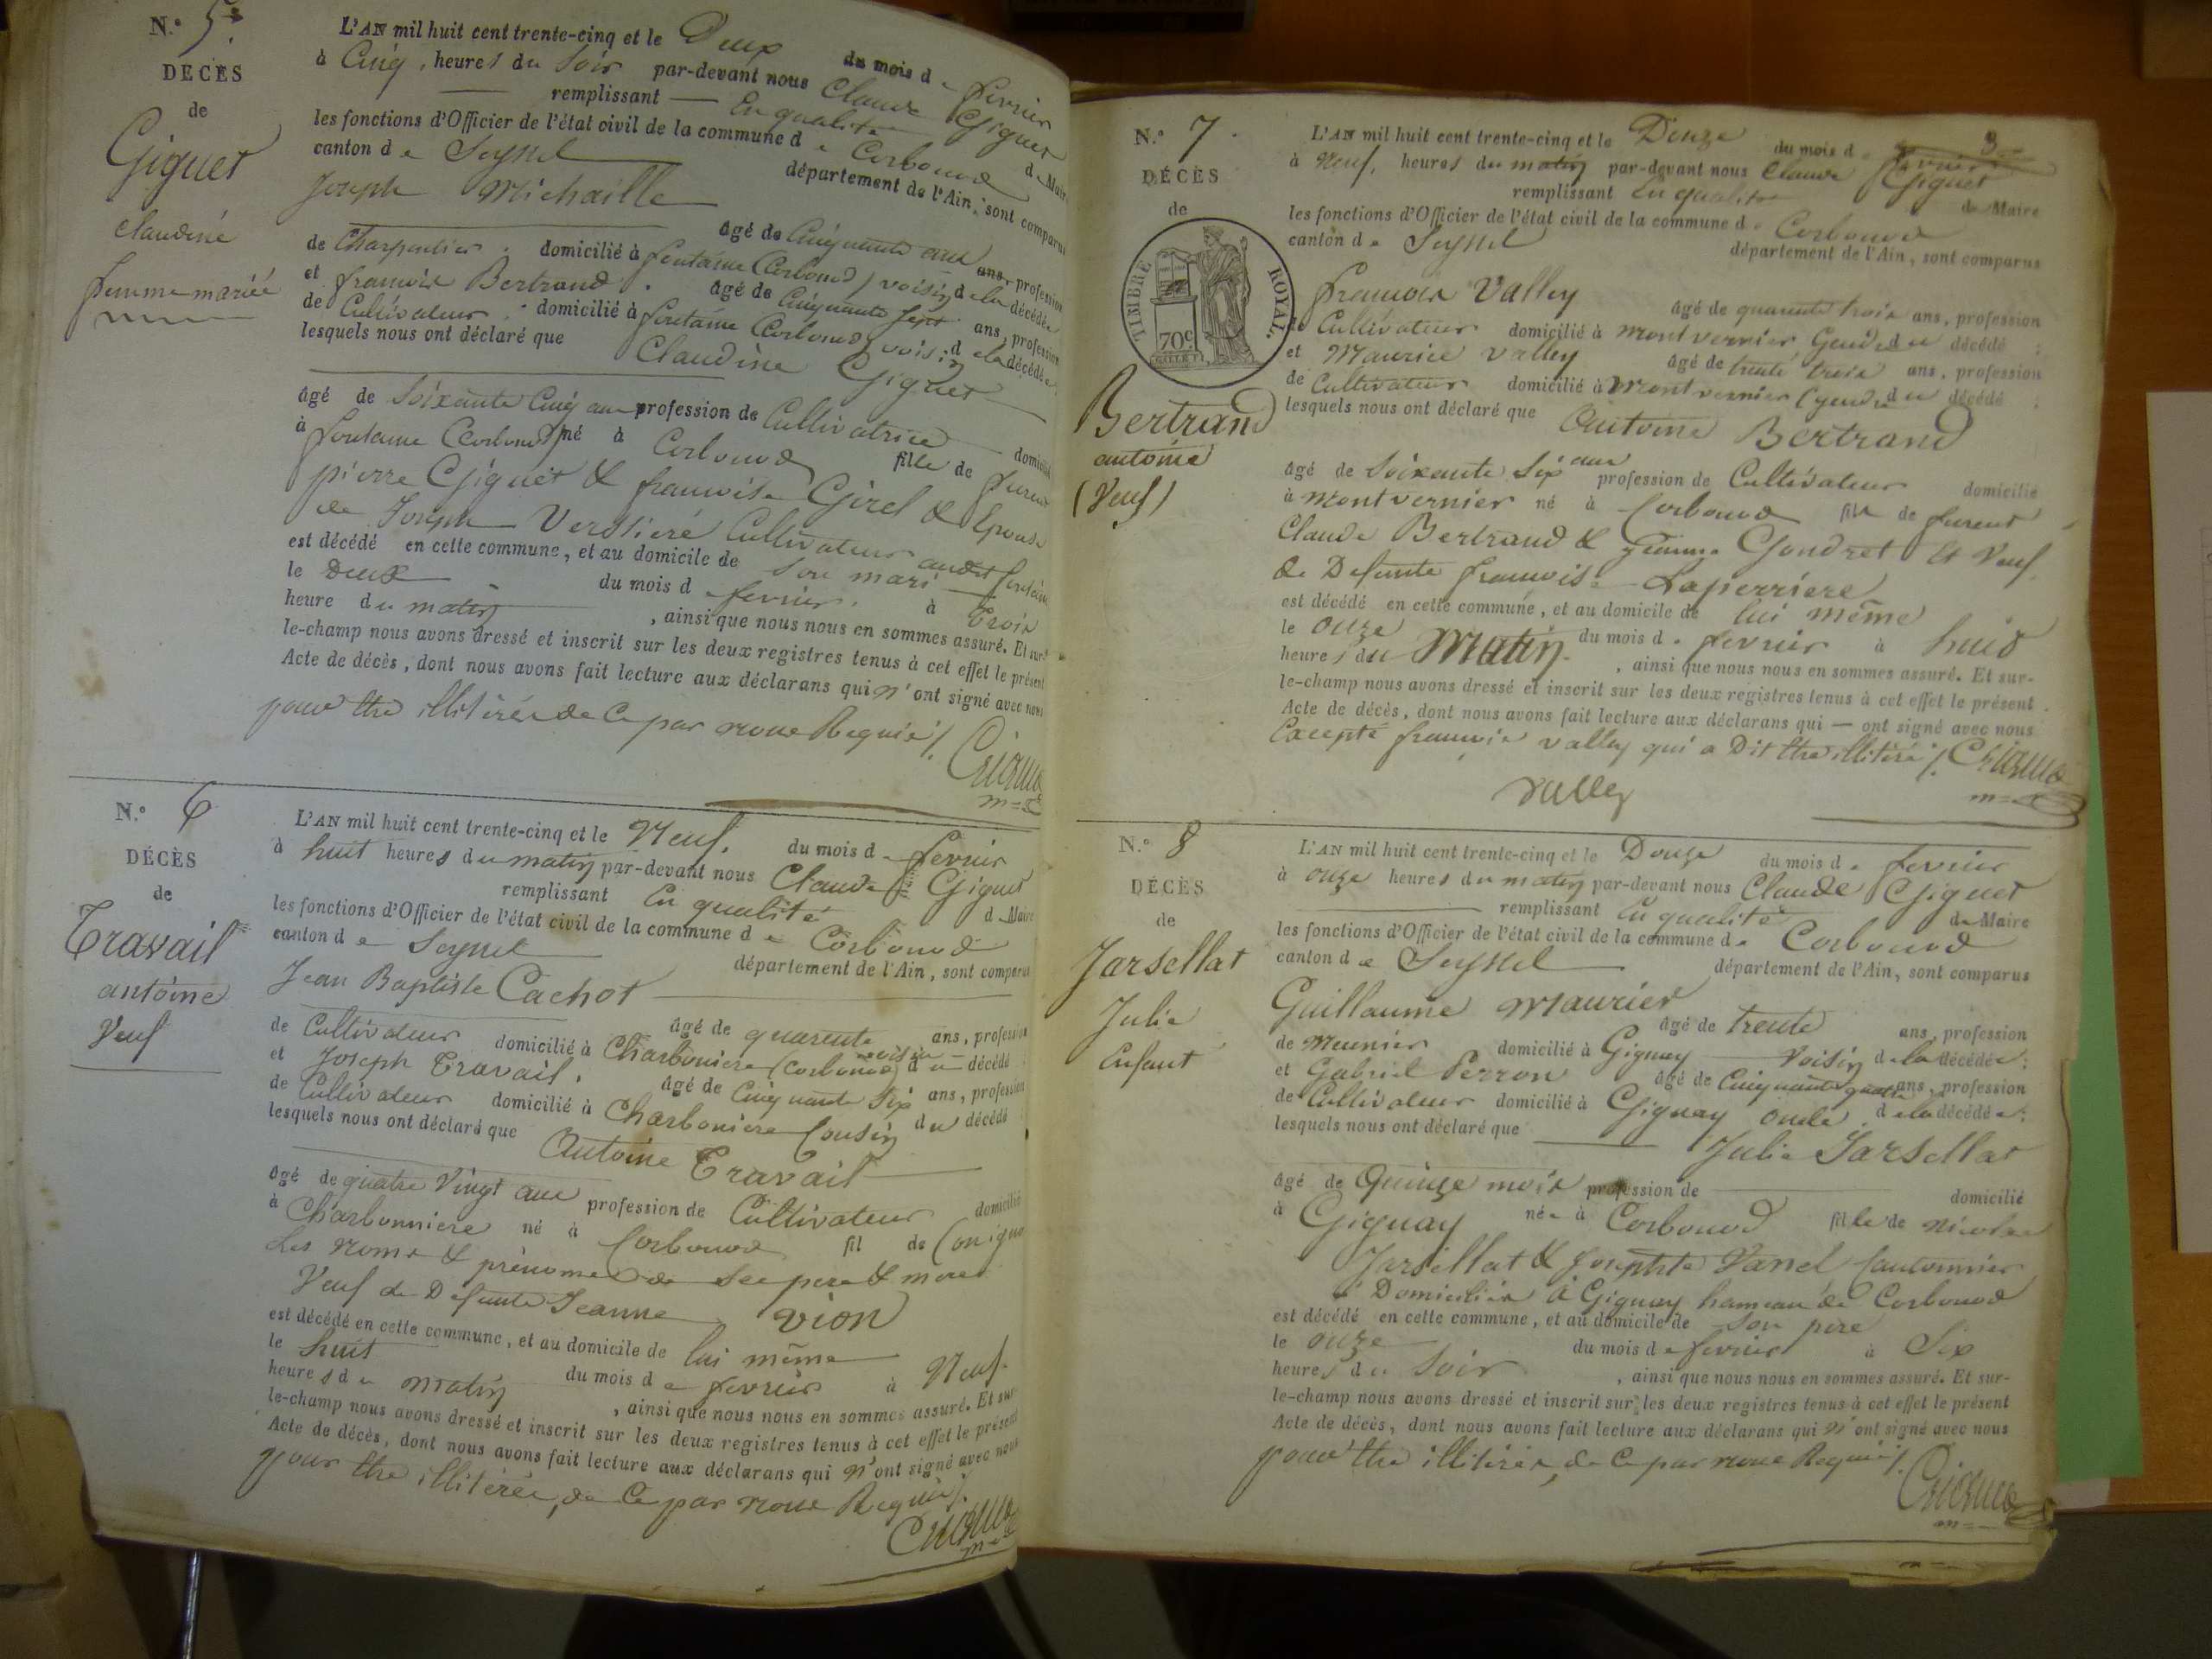 N.° 5.
DÉCÈS
de
Giguet
Claudine
femme mariée
L'AN mil huit cent trente-cinq et le Deux du mois de fevrier
à Cinq, heures du Soir par-devant nous Claude Giguet
remplissant En qualité de Maire
les fonctions d'Officier de l'état civil de la commune de Corbonod
canton de Seyssel département de l'Ain, sont comparus
Joseph Michaille
âgé de Cinquante ans ans, profession
de Charpentier domicilié à fontaine (Corbonod) voisin de la décédée
et francois Bertrand. âgé de Cinquante Sept ans, profession
de Cultivateur domicilié à fontaine Corbonod, voisin de la décédée
lesquels nous ont déclaré que Claudine Giguet
âgé de Soixante Cinq ans profession de Cultivatrice domicilié
à fontaine (Corbonod) né à Corbonod fille de furent
pierre Giguet & francoise Girel & Epouse
de Joseph Cultivateur audit fontaine
est décédé en cette commune, et au domicile de Son mari
le Deux du mois de fevrier. à Trois
heure du matin, ainsi que nous nous en sommes assuré. Et sur-
le-champ nous avons dressé et inscrit sur les deux registres tenus à cet effet le présent
Acte de décès, dont nous avons fait lecture aux déclarans qui n'ont signé avec nous
pour être illitérés de ce par nous Requis /.
N.° 6
DÉCÈS
de
Travail
antoine
Veuf
L'AN mil huit cent trente-cinq et le Neuf. du mois de fevrier
à huit heures du matin par-devant nous Claude Giguet
remplissant En qualité de Maire
les fonctions d'Officier de l'état civil de la commune de Corbonod
canton de Seyssel département de l'Ain, sont comparus
Jean Baptiste Cachot
âgé de quarente ans, profession
de Cultivateur domicilié à Charboniere (Corbonod) voisin du décédé
et Joseph Travail. âgé de Cinquante Six ans, profession
de Cultivateur domicilié à Charboniere Cousin du décédé
lesquels nous ont déclaré que Antoine Travail
âgé de quatre Vingt ans profession de Cultivateur domicilié
à Charbonniere né à Corbonod fil de
Les noms & prénoms de Ses pere & mere
Veuf de Defunte Jeanne vion
est décédé en cette commune, et au domicile de lui même
le huit du mois de fevrier à Neuf
heures du matin, ainsi que nous nous en sommes assuré. Et sur-
le-champ nous avons dressé et inscrit sur les deux registres tenus à cet effet le présent
Acte de décès, dont nous avons fait lecture aux déclarans qui n'ont signé avec nous
pour être illitérés, de ce par nous Requis /.
N.° 7.
DÉCÈS
de
TIMBRE ROYAL.
70c
Bertrand
antoine
(Veuf)
3
L'AN mil huit cent trente-cinq et le Douze du mois de fevrier
à Neuf, heures du matin par-devant nous Claude Giguet
remplissant En qualité de Maire
les fonctions d'Officier de l'état civil de la commune de Corbonod
canton de Seyssel département de l'Ain, sont comparus
francois Valley âgé de quarente trois ans, profession
de Cultivateur domicilié à montvernier Gendre du décédé ;
et Maurice Valley âgé de trente trois ans, profession
de Cultivateur domicilié à montvernier (gendre du décédé ;
lesquels nous ont déclaré que Antoine Bertrand
âgé de Soixante Six ans profession de Cultivateur domicilié
à montvernier né à Corbonod fils de furent
Claude Bertrand & Gondret Et Veuf
de Defunte francoise Laperriere
est décédé en cette commune, et au domicile de lui même
le onze du mois de fevrier à huit
heures du Matin, ainsi que nous nous en sommes assuré. Et sur-
le-champ nous avons dressé et inscrit sur les deux registres tenus à cet effet le présent
Acte de décès, dont nous avons fait lecture aux déclarans qui — ont signé avec nous
Excepté francois valley qui a Dit être illitéré /.
valley
N.° 8
DÉCÈS
de
Jarsellat
Julie
Enfant
L'AN mil huit cent trente-cinq et le Douze du mois de fevrier
à onze heures du matin par-devant nous Claude Giguet
remplissant En qualité de Maire
les fonctions d'Officier de l'état civil de la commune de Corbonod
canton de Seyssel département de l'Ain, sont comparus
Guillaume Maurier âgé de trente ans, profession
de Meunier domicilié à Gignay voisin de la décédée ;
et Gabriel Perron âgé de Cinquante quatre ans, profession
de Cultivateur domicilié à Gignay oncle de la décédée ;
lesquels nous ont déclaré que Julie Jarsellat
âgé de Quinze mois profession de domicilié
à Gignay née à Corbonod fille de Nicolas
Jarsellat & Josephte Vanel Cantonnier
Domiciliés à Gignay hameau de Corbonod
est décédé en cette commune, et au domicile de Son pere
le onze du mois de fevrier à Six
heures du Soir, ainsi que nous nous en sommes assuré. Et sur-
le-champ nous avons dressé et inscrit sur les deux registres tenus à cet effet le présent
Acte de décès, dont nous avons fait lecture aux déclarans qui n'ont signé avec nous
pour être illitérés, de ce par nous Requis /.